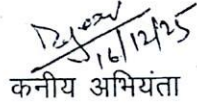 16/12/25
कनीय अभियंता